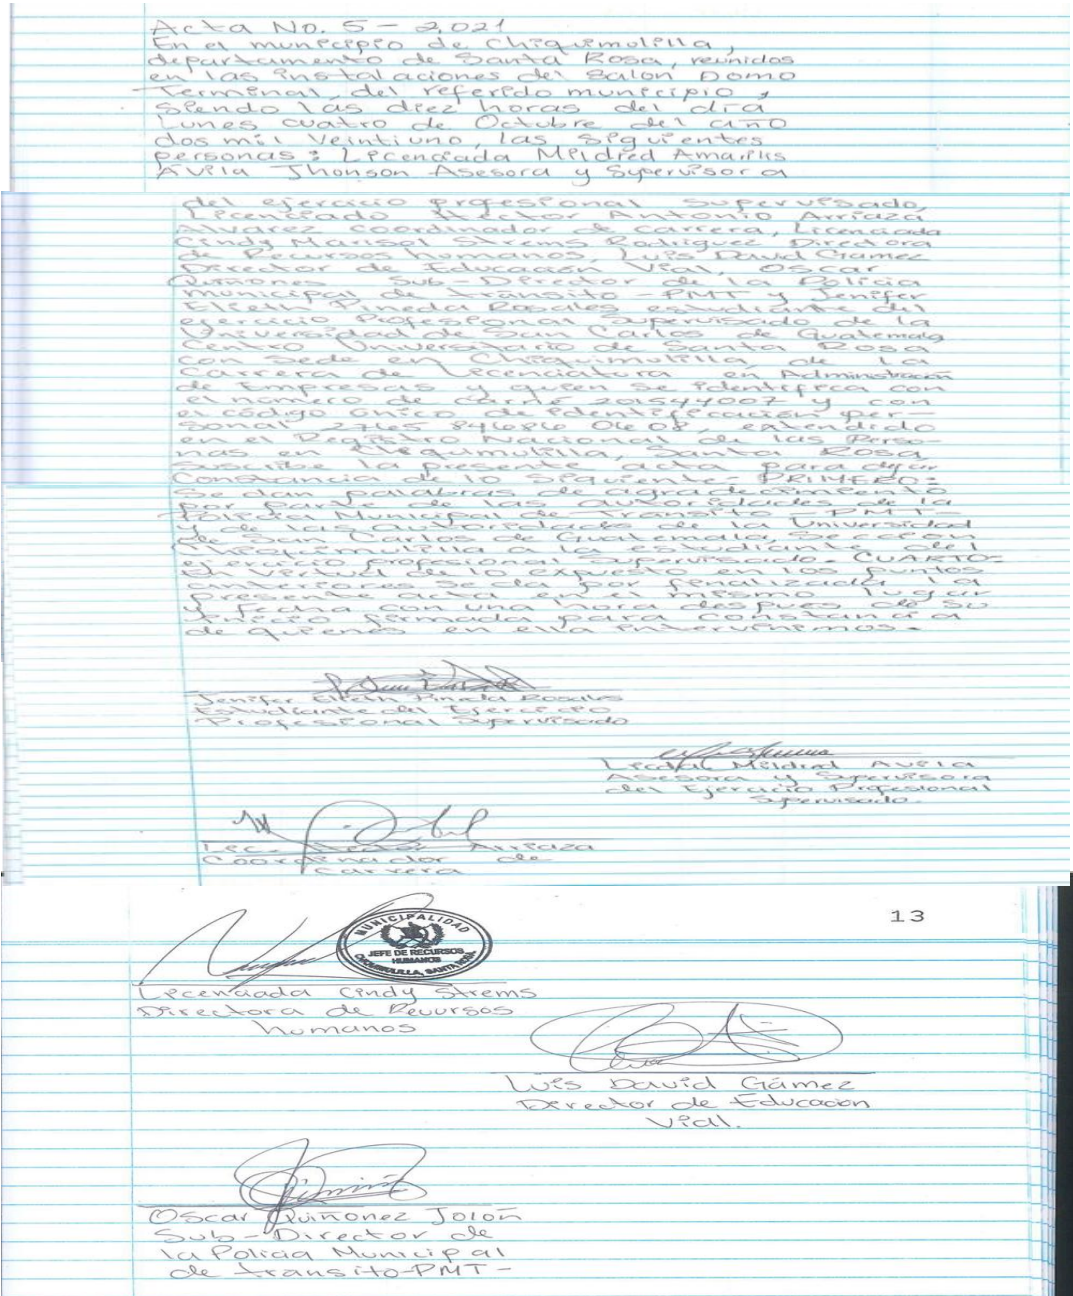 Acta No. 5 - 2,021
En el municipio de Chiquimulilla,
departamento de Santa Rosa, reunidos
en las instalaciones del Salon Domo
Terminal, del referido municipio,
siendo las diez horas del día
Lunes cuatro de Octubre del año
dos mil veintiuno, las siguientes
personas: Licenciada Mildred Amarilis
Avila Jhonson Asesora y Supervisora
del ejercicio profesional Supervisado,
Licenciado Hector Antonio Arriaza
Alvarez coordinador de carrera, Licenciada
Cindy Marisol Strems Rodriguez Directora
de Recursos humanos, Luis David Gamez
Director de Educación Vial, Oscar
Quiñones Sub-Director de la Policia
municipal de transito -PMT y Jenifer
Elieth Pineda Rosales estudiante del
ejercicio Profesional Supervisado de la
Universidad de San Carlos de Guatemala
Centro Universitario de Santa Rosa
con Sede en Chiquimulilla, de la
Carrera de Licenciatura en Administración
de Empresas y quien se identifica con
el número de carné 201544007 y con
el código único de identificación per-
sonal 2765 84686 0608, extendido
en el Registro Nacional de las Perso-
nas en Chiquimulilla, Santa Rosa
Suscribe la presente acta para dejar
Constancia de lo siguiente- PRIMERO:
Se dan palabras de agradecimiento
por parte de las autoridades de la
Policia Municipal de Transito - PMT-
y de las autoridades de la Universidad
de San Carlos de Guatemala, Sección
Chiquimulilla a la estudiante del
ejercicio profesional Supervisado. CUARTO:
En virtud de lo expuesto en los puntos
anteriores se da por finalizada la
presente acta en el mismo lugar
y fecha con una hora despues de su
inicio firmada para constancia
de quienes en ella intervenimos.
Jenifer Elieth Pineda Rosales
Estudiante del Ejercicio
Profesional Supervisado
Licda. Mildred Avila
Asesora y Supervisora
del Ejercicio Profesional
Supervisado.
Lic. Hector Arriaza
Coordinador de
Carrera
13
MUNICIPALIDAD
JEFE DE RECURSOS
HUMANOS
CHIQUIMULILLA, SANTA ROSA
Licenciada Cindy Strems
Directora de Recursos
humanos
Luis David Gámez
Director de Educación
Vial.
Oscar Quiñonez Jolón
Sub-Director de
la Policia Municipal
de transito-PMT-